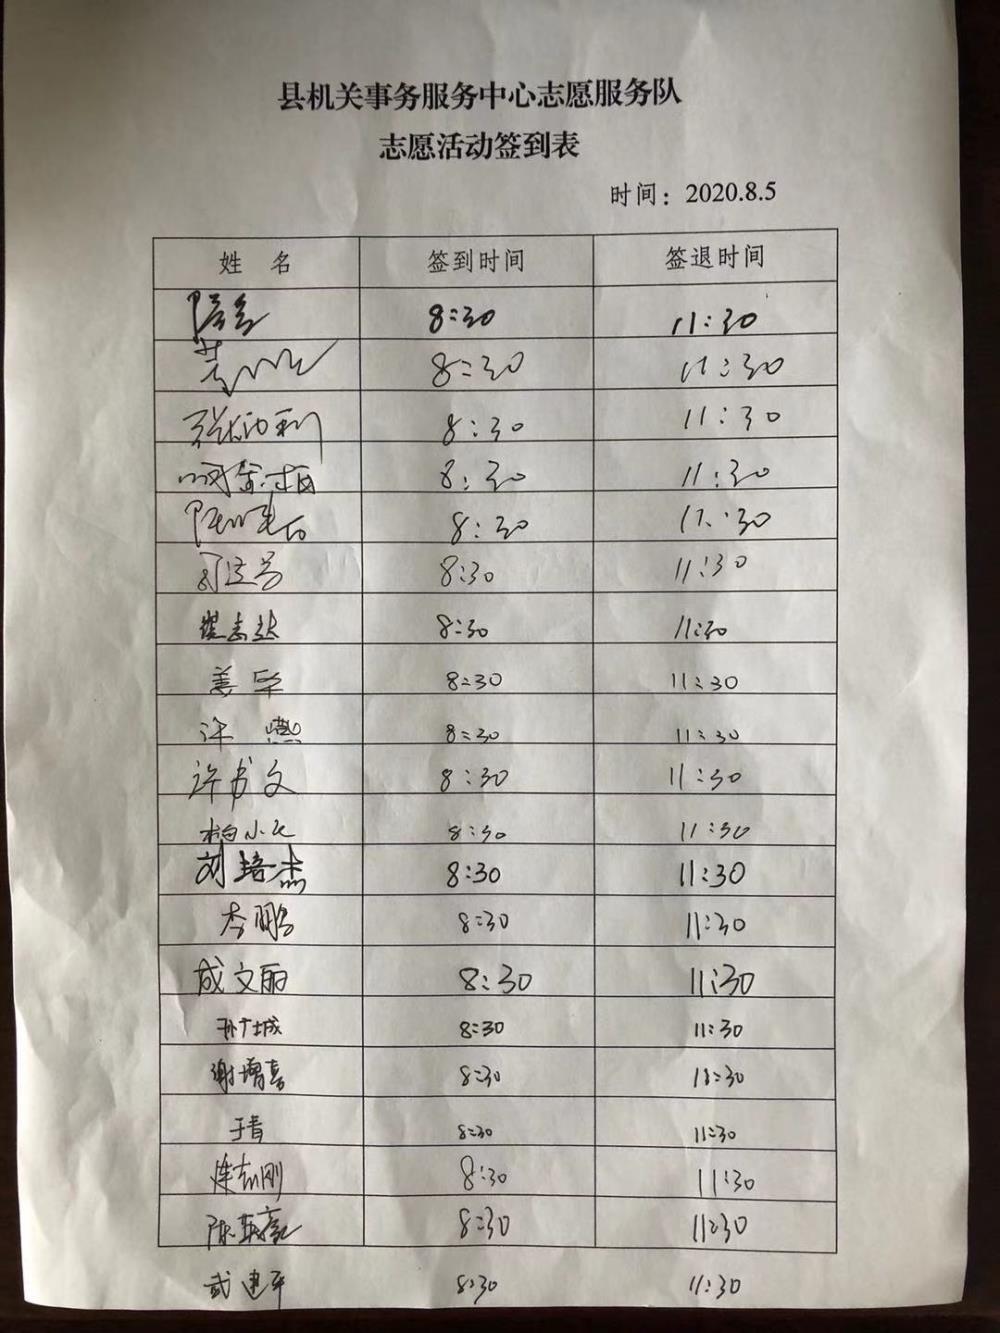 县机关事务服务中心志愿服务队
志愿活动签到表
时间：2020.8.5
姓 名 签到时间 签退时间
8:30 11:30
8:30 11:30
8:30 11:30
8:30 11:30
8:30 11:30
8:30 11:30
志达 8:30 11:30
姜 8:30 11:30
许 8:30 11:30
许文 8:30 11:30
柏小 8:30 11:30
刘培杰 8:30 11:30
李鹏 8:30 11:30
成文丽 8:30 11:30
孙广城 8:30 11:30
谢增喜 8:30 11:30
于青 8:30 11:30
徐志刚 8:30 11:30
陈英豪 8:30 11:30
武建平 8:30 11:30